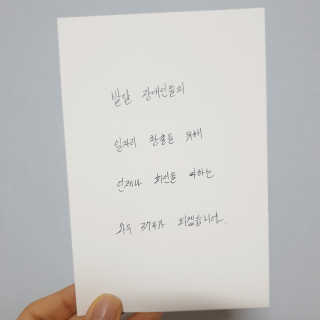 발달 장애인들의
일자리 창출을 위해
언제나 최선을 다하는
되겠습니다.